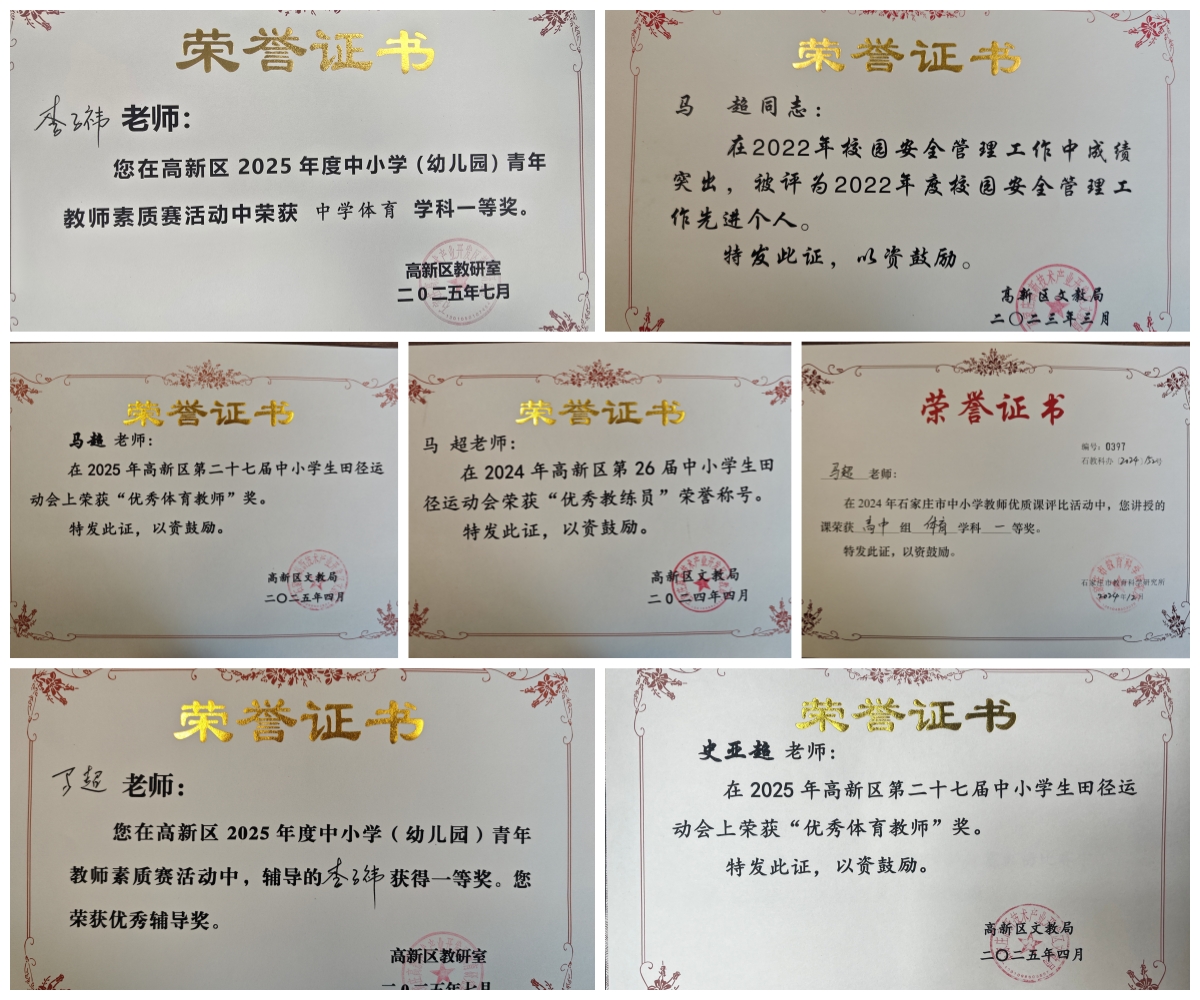 荣誉证书
李子祎 老师：
您在高新区 2025 年度中小学（幼儿园）青年
教师素质赛活动中荣获 中学体育 学科一等奖。
高新区教研室
二0二五年七月
荣誉证书
马 超同志：
在2022年校园安全管理工作中成绩
突出，被评为2022年度校园安全管理工
作先进个人。
特发此证，以资鼓励。
高新区文教局
二〇二三年三月
荣誉证书
马超 老师：
在 2025 年高新区第二十七届中小学生田径运
动会上荣获“优秀体育教师”奖。
特发此证，以资鼓励。
高新区文教局
二〇二五年四月
荣誉证书
马 超老师：
在 2024 年高新区第 26 届中小学生田
径运动会荣获“优秀教练员”荣誉称号。
特发此证，以资鼓励。
高新区文教局
二0二四年四月
荣誉证书
编号：0397
石教科办（2024）52号
马超 老师：
在 2024 年石家庄市中小学教师优质课评比活动中，您讲授的
课荣获 高中 组 体育 学科 一 等奖。
特发此证，以资鼓励。
石家庄市教育科学研究所
2024年12月
荣誉证书
马超 老师：
您在高新区 2025 年度中小学（幼儿园）青年
教师素质赛活动中，辅导的李子祎获得一等奖。您
荣获优秀辅导奖。
高新区教研室
二0二五年七月
荣誉证书
史亚超 老师：
在 2025 年高新区第二十七届中小学生田径运
动会上荣获“优秀体育教师”奖。
特发此证，以资鼓励。
高新区文教局
二〇二五年四月